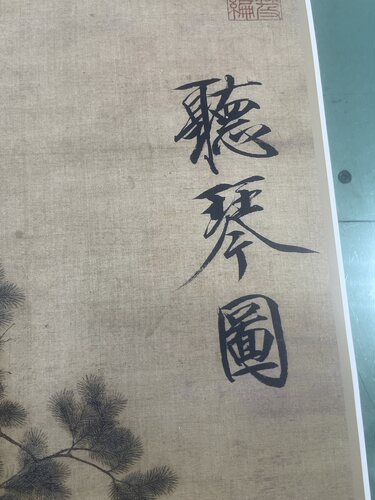 聽琴圖